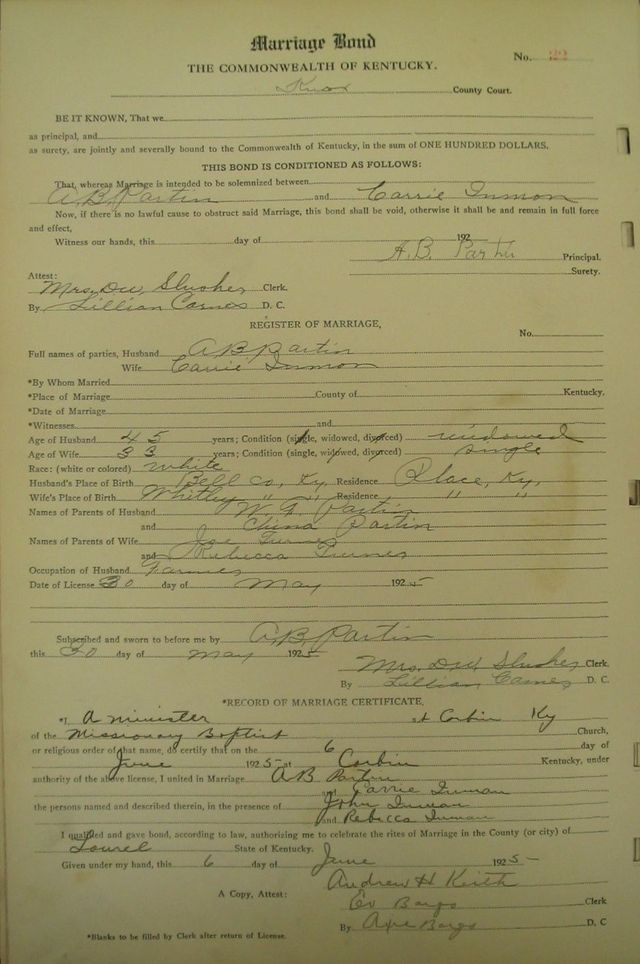 Marriage Bond
No. 22
THE COMMONWEALTH OF KENTUCKY.
Knox County Court.
BE IT KNOWN, That we
as principal, and
as surety, are jointly and severally bound to the Commonwealth of Kentucky, in the sum of ONE HUNDRED DOLLARS.
THIS BOND IS CONDITIONED AS FOLLOWS:
That, whereas Marriage is intended to be solemnized between
A.B. Partin and Carrie Inmon
Now, if there is no lawful cause to obstruct said Marriage, this bond shall be void, otherwise it shall be and remain in full force
and effect,
Witness our hands, this day of 192
A.B. Partin Principal.
Surety.
Attest:
Mrs. D.W. Slusher Clerk.
By Lillian Carnes D. C.
REGISTER OF MARRIAGE,
No.
Full names of parties, Husband A B Partin
Wife Carrie Inmon
*By Whom Married
*Place of Marriage County of Kentucky.
*Date of Marriage
*Witnesses and
Age of Husband 45 years; Condition (single, widowed, divorced) widowed
Age of Wife 33 years; Condition (single, widowed, divorced) single
Race: (white or colored) white
Husband's Place of Birth Bell Co, Ky. Residence Place, Ky.
Wife's Place of Birth Whitley " " Residence " "
Names of Parents of Husband W. F. Partin
and China Partin
Names of Parents of Wife Joe
and Rebecca
Occupation of Husband Farmer
Date of License 30 day of May 1925
Subscribed and sworn to before me by A.B. Partin
this 30 day of May 1925
Mrs. D.W. Slusher Clerk.
By Lillian Carnes D. C.
*RECORD OF MARRIAGE CERTIFICATE.
*I, A minister at Corbin Ky
of the Missionary Baptist Church,
or religious order of that name, do certify that on the 6 day of
June 1925- at Corbin Kentucky, under
authority of the above license, I united in Marriage A B Partin
and Carrie Inman
the persons named and described therein, in the presence of John Inman
and Rebecca Inman
I qualified and gave bond, according to law, authorizing me to celebrate the rites of Marriage in the County (or city) of
Lourel State of Kentucky.
Given under my hand, this 6 day of June 1925-
Andrew H Keith
A Copy, Attest:
Clerk
By D. C
*Blanks to be filled by Clerk after return of License.